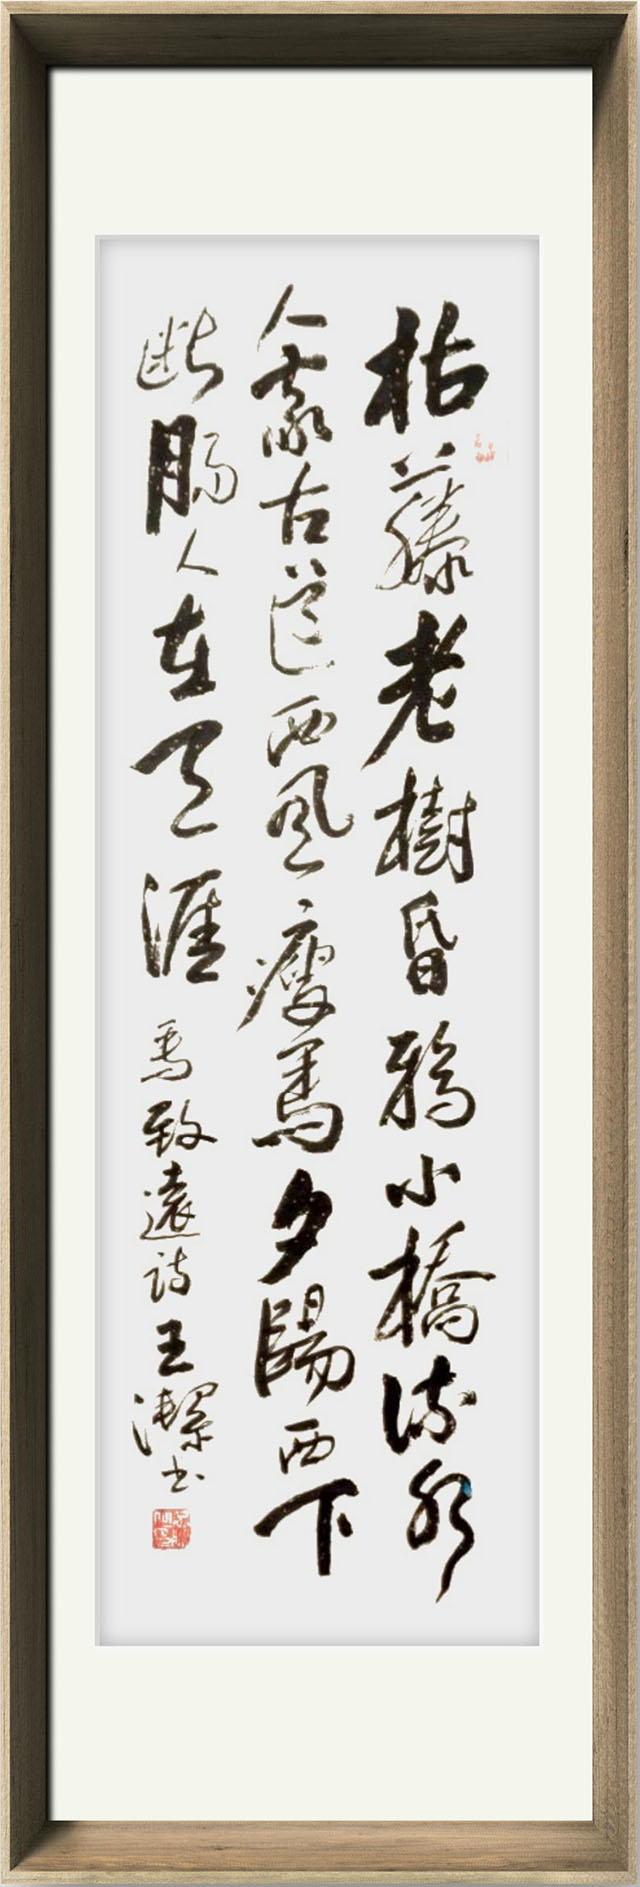 枯藤老樹昏鴉小橋流水
人家古道西風瘦馬夕陽西下
斷腸人在天涯 馬致遠詩 王潔書